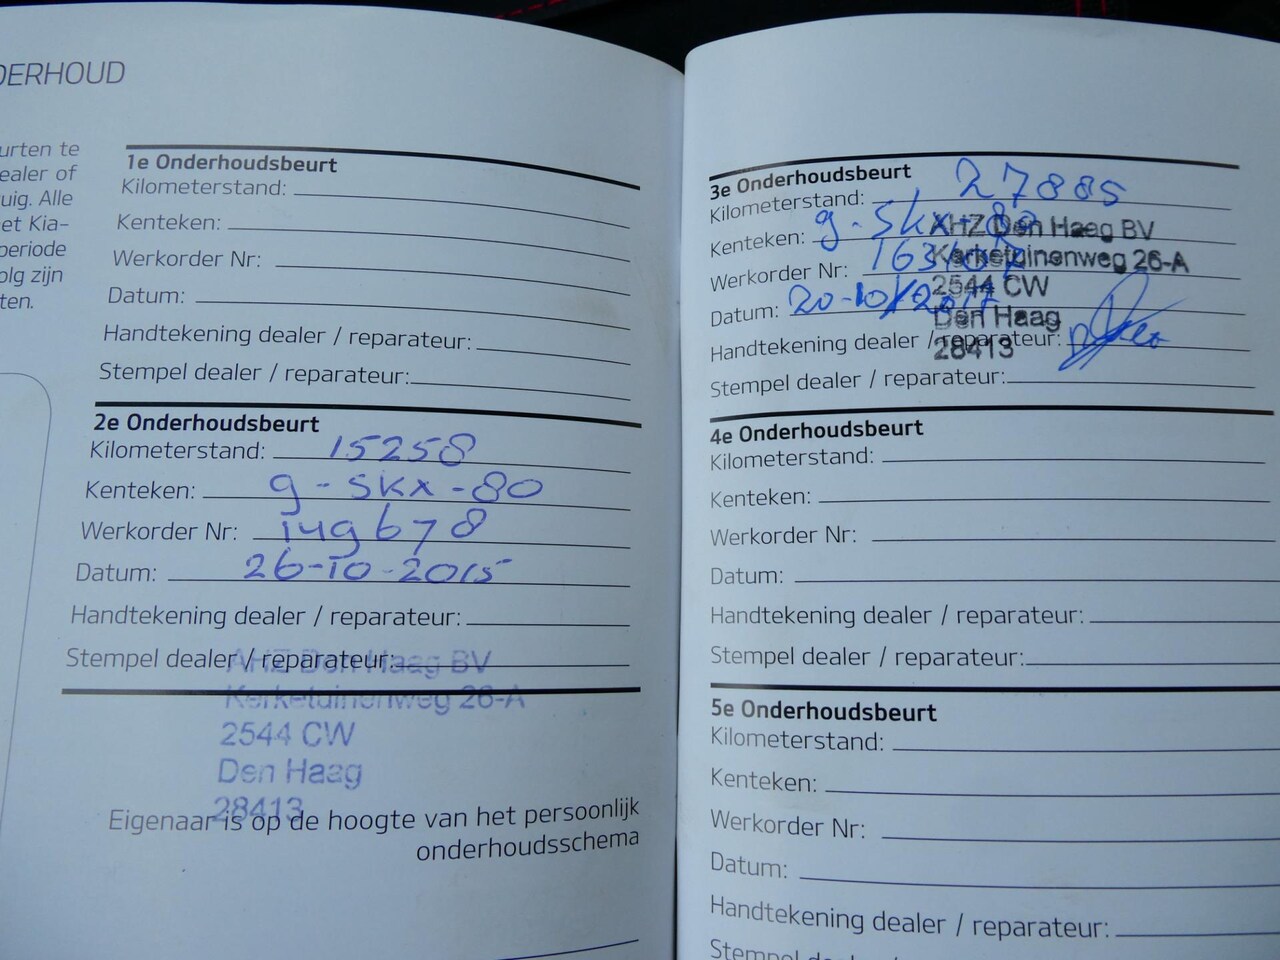 DERHOUD
urten te
ealer of
uig. Alle
et Kia-
periode
olg zijn
ten.
1e Onderhoudsbeurt
Kilometerstand:
Kenteken:
Werkorder Nr:
Datum:
Handtekening dealer / reparateur:
Stempel dealer / reparateur:
2e Onderhoudsbeurt
Kilometerstand: 15258
Kenteken: 9-SKX-80
Werkorder Nr: 149678
Datum: 26-10-2015
Handtekening dealer / reparateur:
Stempel dealer / reparateur:
AHZ Den Haag BV
Kerketuinenweg 26-A
2544 CW
Den Haag
28413
Eigenaar is op de hoogte van het persoonlijk
onderhoudsschema
3e Onderhoudsbeurt
Kilometerstand: 27885
Kenteken: 9-SKX-80
Werkorder Nr:
Datum: 20-10-2017
Handtekening dealer / reparateur:
Stempel dealer / reparateur:
AHZ Den Haag BV
Kerketuinenweg 26-A
2544 CW
Den Haag
28413
4e Onderhoudsbeurt
Kilometerstand:
Kenteken:
Werkorder Nr:
Datum:
Handtekening dealer / reparateur:
Stempel dealer / reparateur:
5e Onderhoudsbeurt
Kilometerstand:
Kenteken:
Werkorder Nr:
Datum:
Handtekening dealer / reparateur: